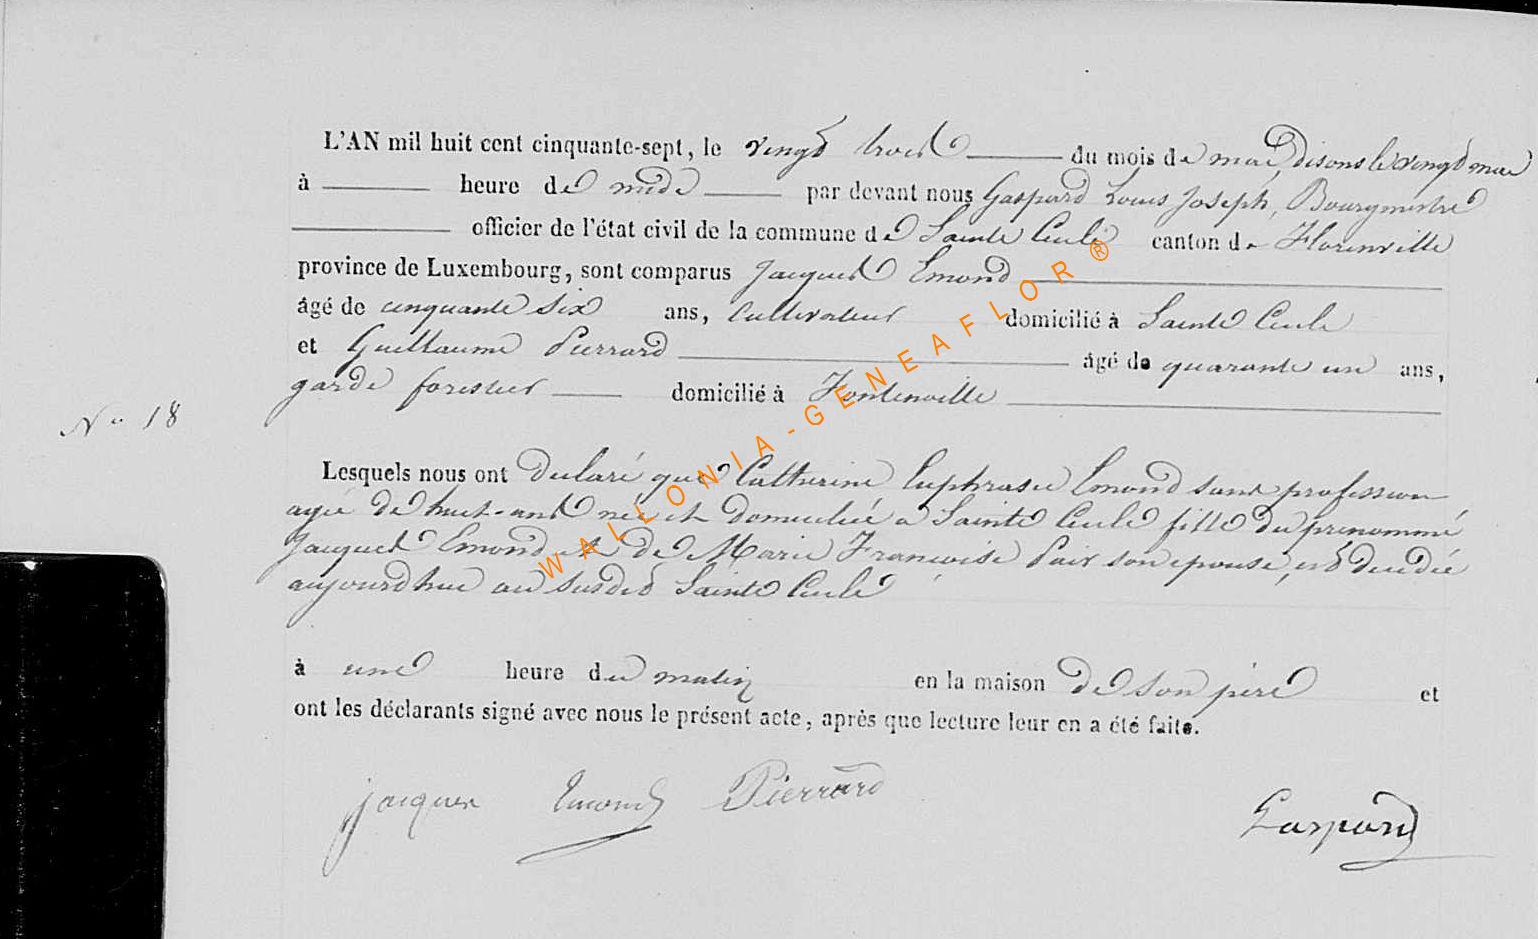 L'AN mil huit cent cinquante-sept, le vingt trois du mois de mai, disons le vingt mai
à heure de midi par devant nous Gaspard Louis Joseph, Bourgmestre
officier de l'état civil de la commune de Sainte Cécile canton de Florenville
province de Luxembourg, sont comparus Jacques Emond
âgé de cinquante six ans, cultivateur domicilié à Sainte Cécile
et Guillaume Pierrard âgé de quarante un ans,
garde forestier domicilié à Fontenoille
N° 18
Lesquels nous ont declaré que Catherine Euphrasie Emond sans profession
agée de huit-ans née et domiciliée a Sainte Cécile fille du prenommé
Jacques Emond et de Marie Francoise son epouse, est decedée
aujourdhui au susdit Sainte Cécile
à une heure du matin en la maison de son père et
ont les déclarants signé avec nous le présent acte, après que lecture leur en a été faite.
jacques Emond Pierrard Gaspard
WALLONIA-GENEAFLOR®